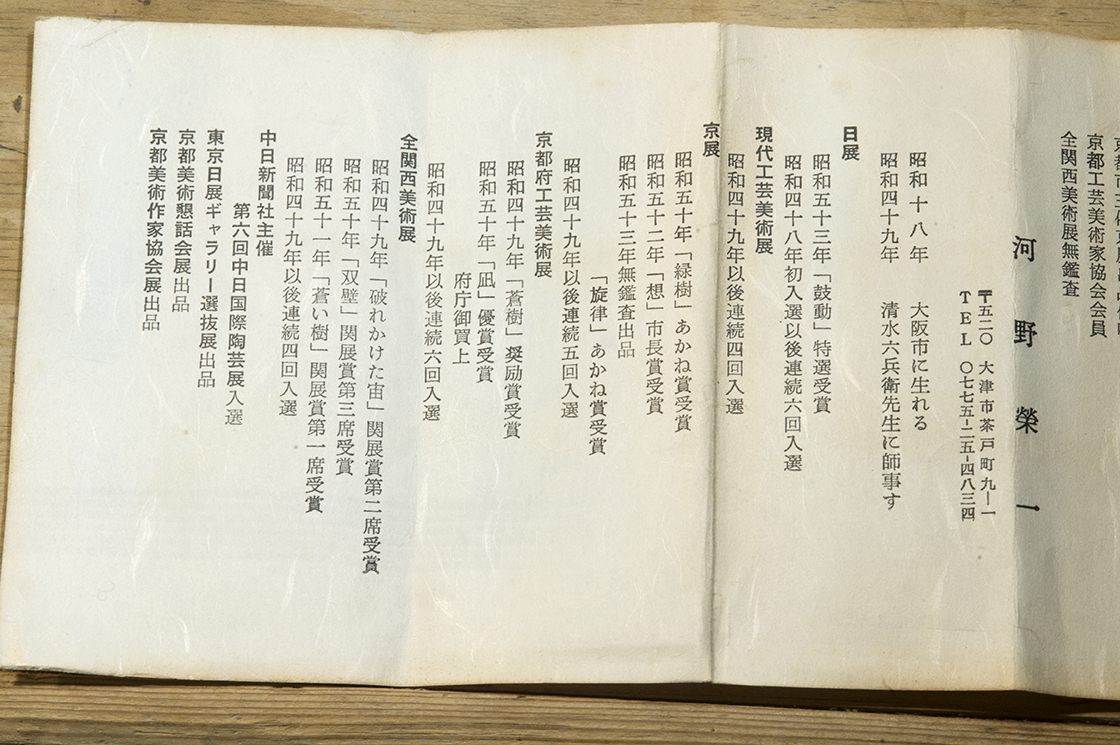 京都工芸美術家協会会員
全関西美術展無鑑査
河野榮一
〒五二〇 大津市茶戸町九ー一
TEL 〇七七五ー二五ー四八三四
昭和十八年 大阪市に生れる
昭和四十九年 清水六兵衛先生に師事す
日展
昭和五十三年「鼓動」特選受賞
昭和四十八年初入選以後連続六回入選
現代工芸美術展
昭和四十九年以後連続四回入選
京展
昭和五十年「緑樹」あかね賞受賞
昭和五十二年「想」市長賞受賞
昭和五十三年無鑑査出品
「旋律」あかね賞受賞
昭和四十九年以後連続五回入選
京都府工芸美術展
昭和四十九年「蒼樹」奨励賞受賞
昭和五十年「凪」優賞受賞
府庁御買上
昭和四十九年以後連続六回入選
全関西美術展
昭和四十九年「破れかけた宙」関展賞第二席受賞
昭和五十年「双壁」関展賞第三席受賞
昭和五十一年「蒼い樹」関展賞第一席受賞
昭和四十九年以後連続四回入選
中日新聞社主催
第六回中日国際陶芸展入選
東京日展ギャラリー選抜展出品
京都美術懇話会展出品
京都美術作家協会展出品